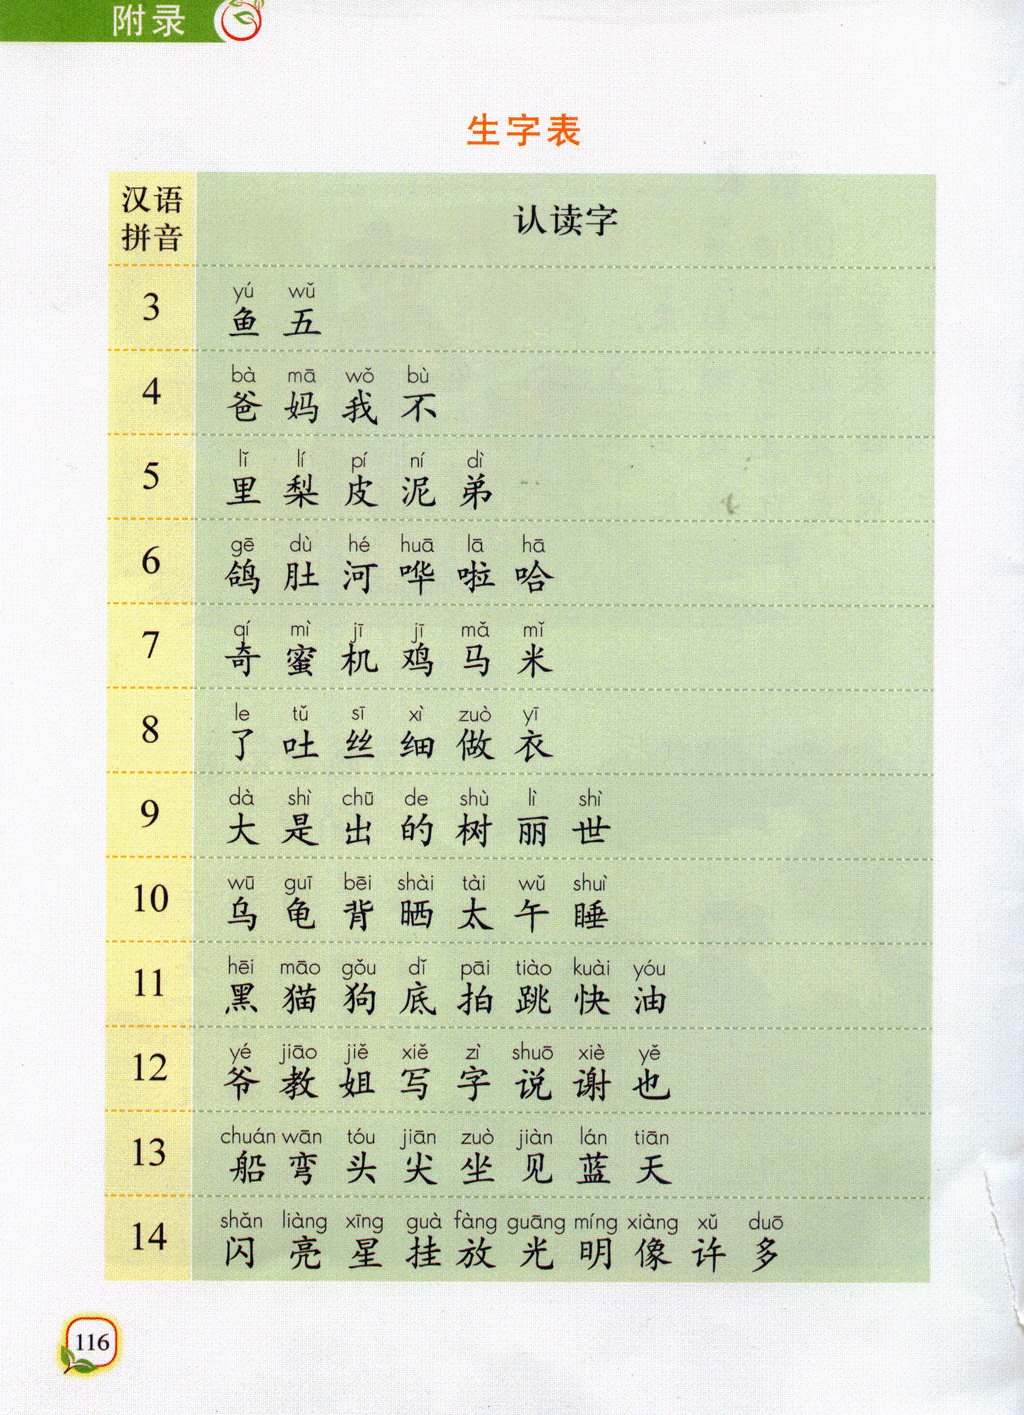 附录
生字表
汉语拼音 认读字
3
yú wǔ
鱼 五
4
bà mā wǒ bù
爸 妈 我 不
5
lǐ lí pí ní dì
里 梨 皮 泥 弟
6
gē dù hé huā lā hā
鸽 肚 河 哗 啦 哈
7
qí mì jī jī mǎ mǐ
奇 蜜 机 鸡 马 米
8
le tǔ sī xì zuò yī
了 吐 丝 细 做 衣
9
dà shì chū de shù lì shì
大 是 出 的 树 丽 世
10
wū guī bēi shài tài wǔ shuì
乌 龟 背 晒 太 午 睡
11
hēi māo gǒu dǐ pāi tiào kuài yóu
黑 猫 狗 底 拍 跳 快 油
12
yé jiāo jiě xiě zì shuō xiè yě
爷 教 姐 写 字 说 谢 也
13
chuán wān tóu jiān zuò jiàn lán tiān
船 弯 头 尖 坐 见 蓝 天
14
shǎn liàng xīng guà fàng guāng míng xiàng xǔ duō
闪 亮 星 挂 放 光 明 像 许 多
116